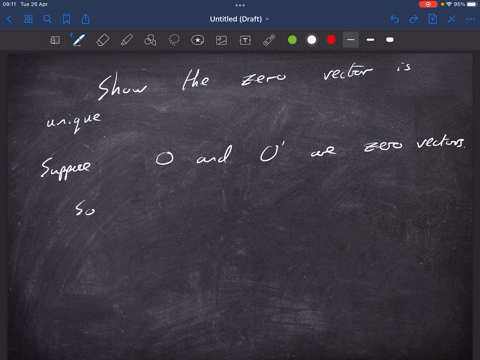 09:11 Tue 26 Apr
95%
Untitled (Draft)
Show the zero vector is
unique
Suppose 0 and 0' are zero vectors.
So